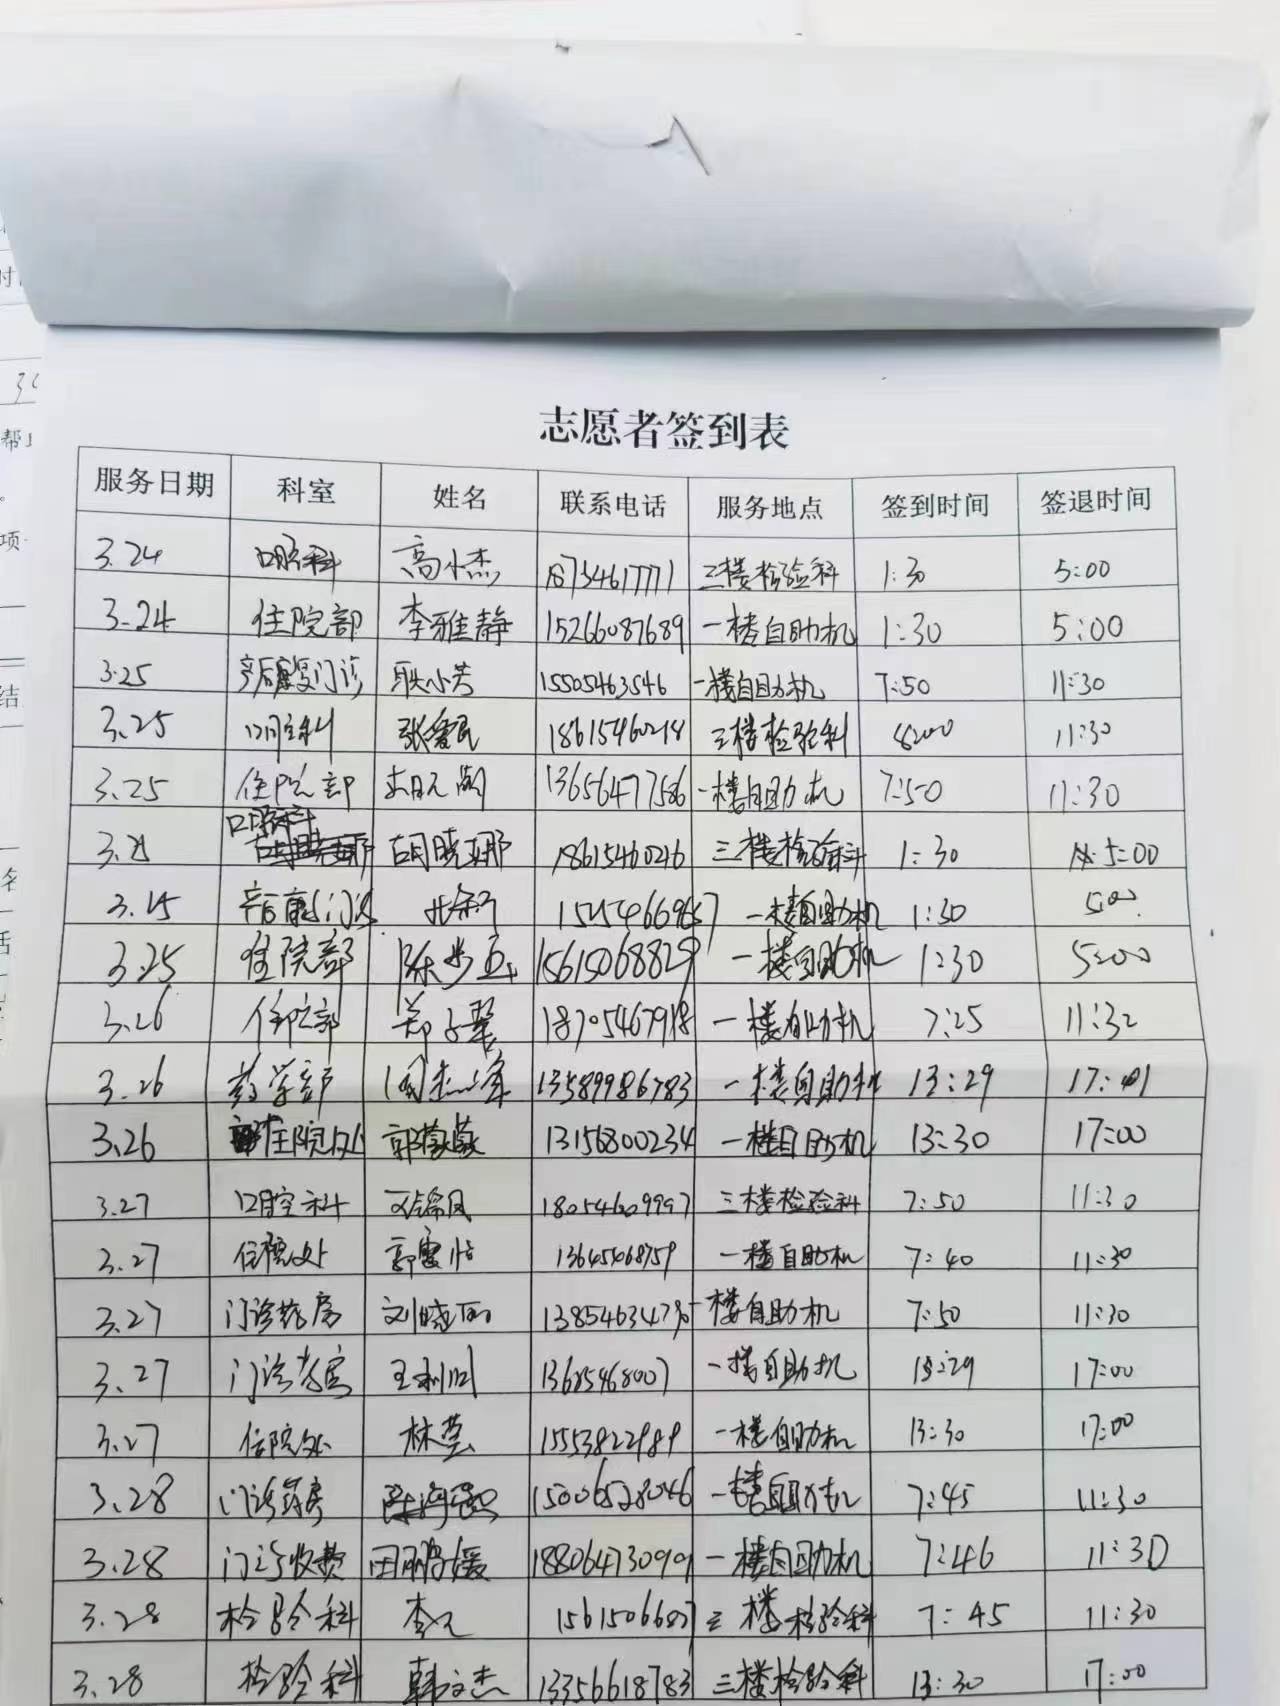 志愿者签到表
服务日期 科室 姓名 联系电话 服务地点 签到时间 签退时间
3.24 口腔科 高小杰 18754617771 三楼检验科 1:30 5:00
3.24 住院部 李雅静 15266087689 一楼自助机 1:30 5:00
3.25 产后康复门诊 耿小芳 15505463546 一楼自助机 7:50 11:30
3.25 口腔科 张爱民 18615460218 三楼检验科 8:00 11:30
3.25 住院部 13656477586 一楼自助机 7:50 11:30
口腔科
3.25 胡晓娜 18615460246 三楼检验科 1:30 5:00
3.25 产后康复门诊 一楼自助机 1:30 5:00
3.25 住院部 陈步玉 15615068829 一楼自助机 1:30 5:00
3.26 住院部 郑子翠 18705467918 一楼自助机 7:25 11:32
3.26 药学部 国杰峰 13589986783 一楼自助机 13:29 17:01
3.26 住院处 郭蒙蒙 13156800234 一楼自助机 13:30 17:00
3.27 口腔科 18054609997 三楼检验科 7:50 11:30
3.27 住院处 13645468759 一楼自助机 7:40 11:30
3.27 门诊药房 刘晓丽 一楼自助机 7:50 11:30
3.27 门诊药房 王利明 13685468007 一楼自助机 13:29 17:00
3.27 住院处 林芸 15553822989 一楼自助机 13:30 17:00
3.28 门诊药房 15006528046 一楼自助机 7:45 11:30
3.28 门诊收费 田鹏媛 18806473090 一楼自助机 7:46 11:30
3.28 检验科 三楼检验科 7:45 11:30
3.28 检验科 韩文杰 13356618783 三楼检验科 13:30 17:00